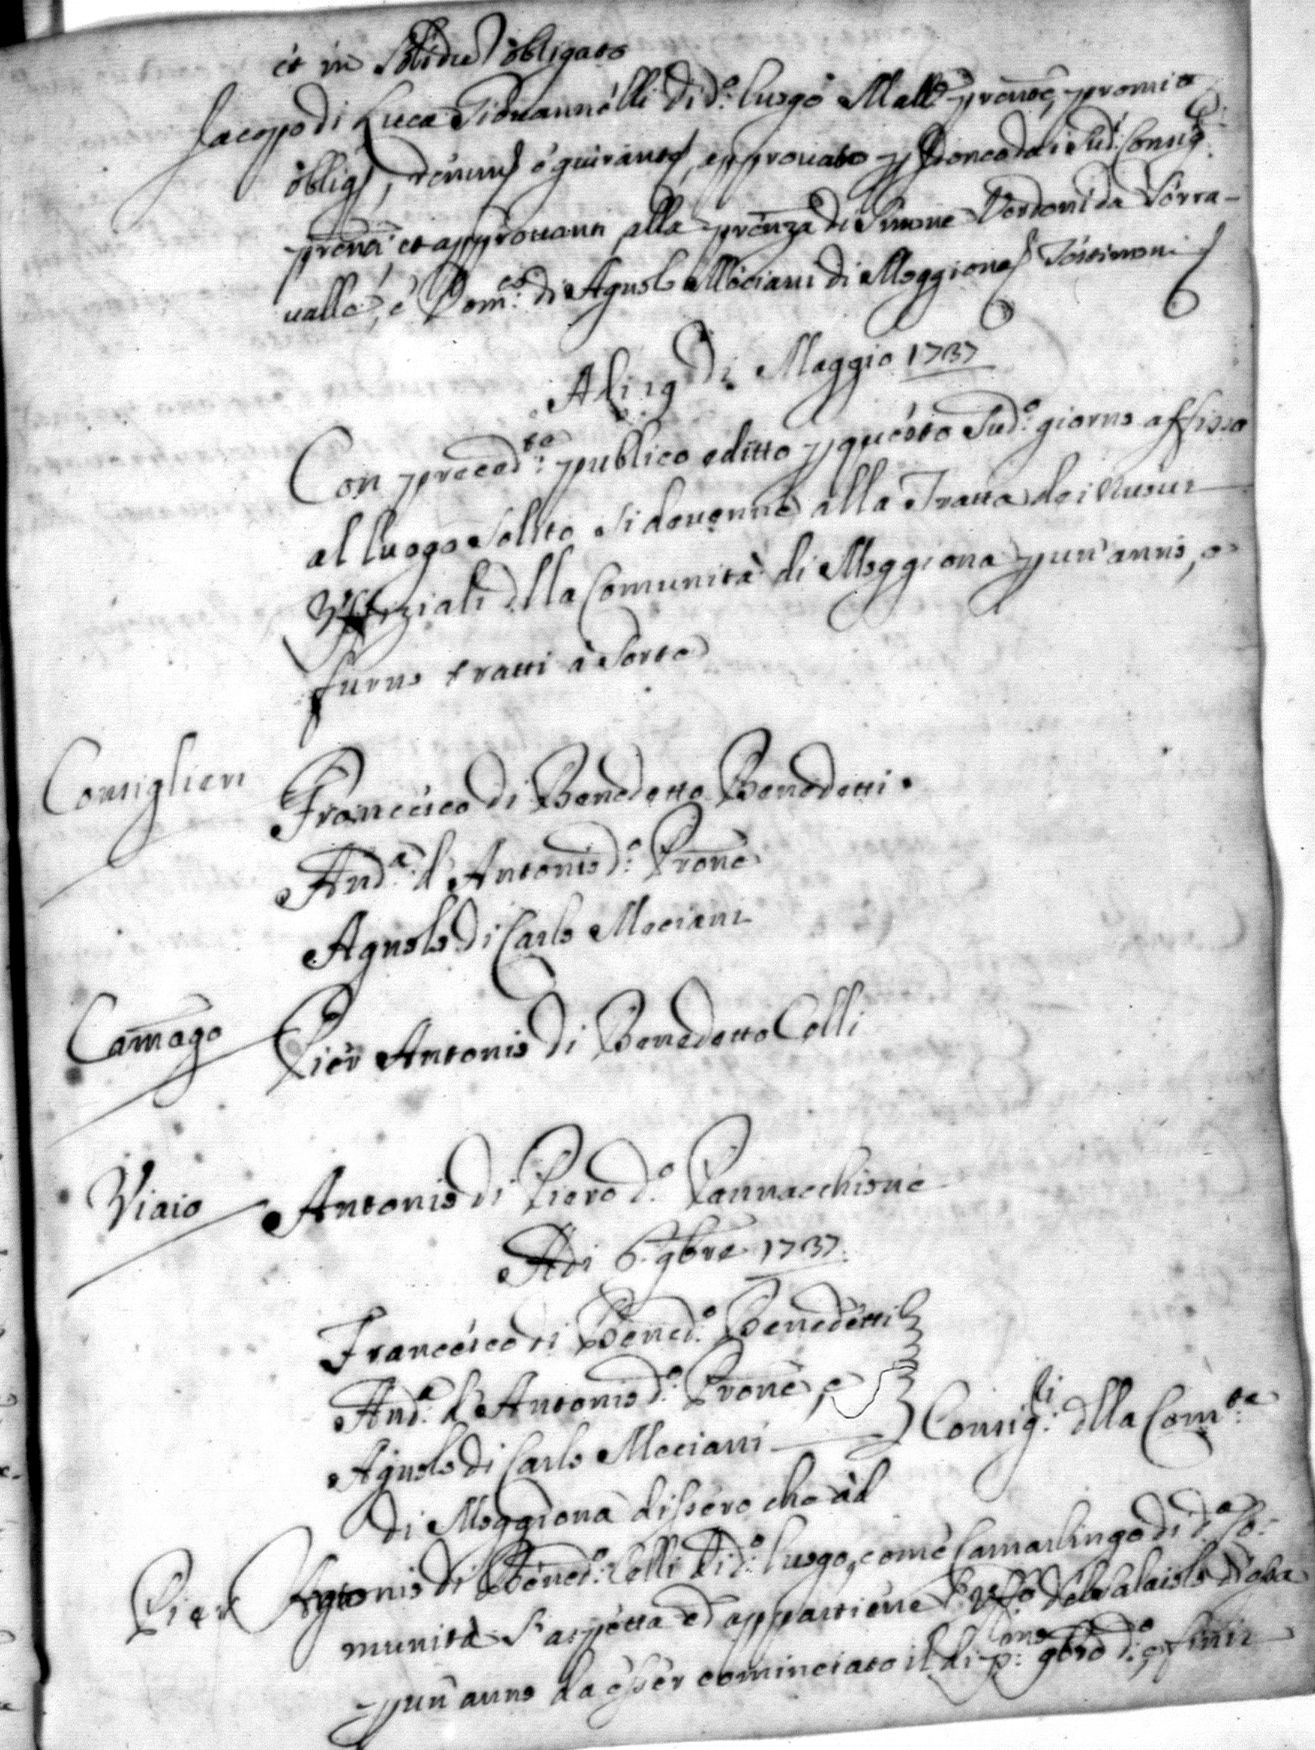 et in Solidu obligato
Jacopo di Luca Giovannelli di d.º luogo Mall.e prente, promite
oblig, renun e guirante, approuato p Idoneo da i Sud.i Consig.ri
prenti et approuanti alla prenza di Simone Vertoni da Serra-
ualle, e Dom.co di Agnolo Mociani di Moggiona Testimoni
A di 19 di Maggio 1737
Con preced.te publico editto p questo Sud.º giorno affisso
al luogo Solito Si deuenne alla Tratta dei Nuoui
Vffiziali dlla Comunità di Moggiona p un' anno, e
furno tratti à Sorte
Consiglieri Francesco di Benedetto Benedetti.
And.a d'Antonio d.º Prone
Agnolo di Carlo Mociani
Camago Pier Antonio di Benedetto Colli
Viaio Antonio di Piero d.º Pannacchione
Adi 6. 9bre 1737.
Francesco di Bened.º Benedetti
And.a d'Antonio d.º Prone, e
Agnolo di Carlo Mociani Consig.ri dlla Com.ta
di Moggiona dissero che àd
Pier Antonio di Bened.º Colli di d.º luogo, come Camarlingo di d.a Co-
munità S'aspetta ed appartiene l'Vffo del
p un' anno da esser cominciato il di p.mo 9bre d.º, e finir